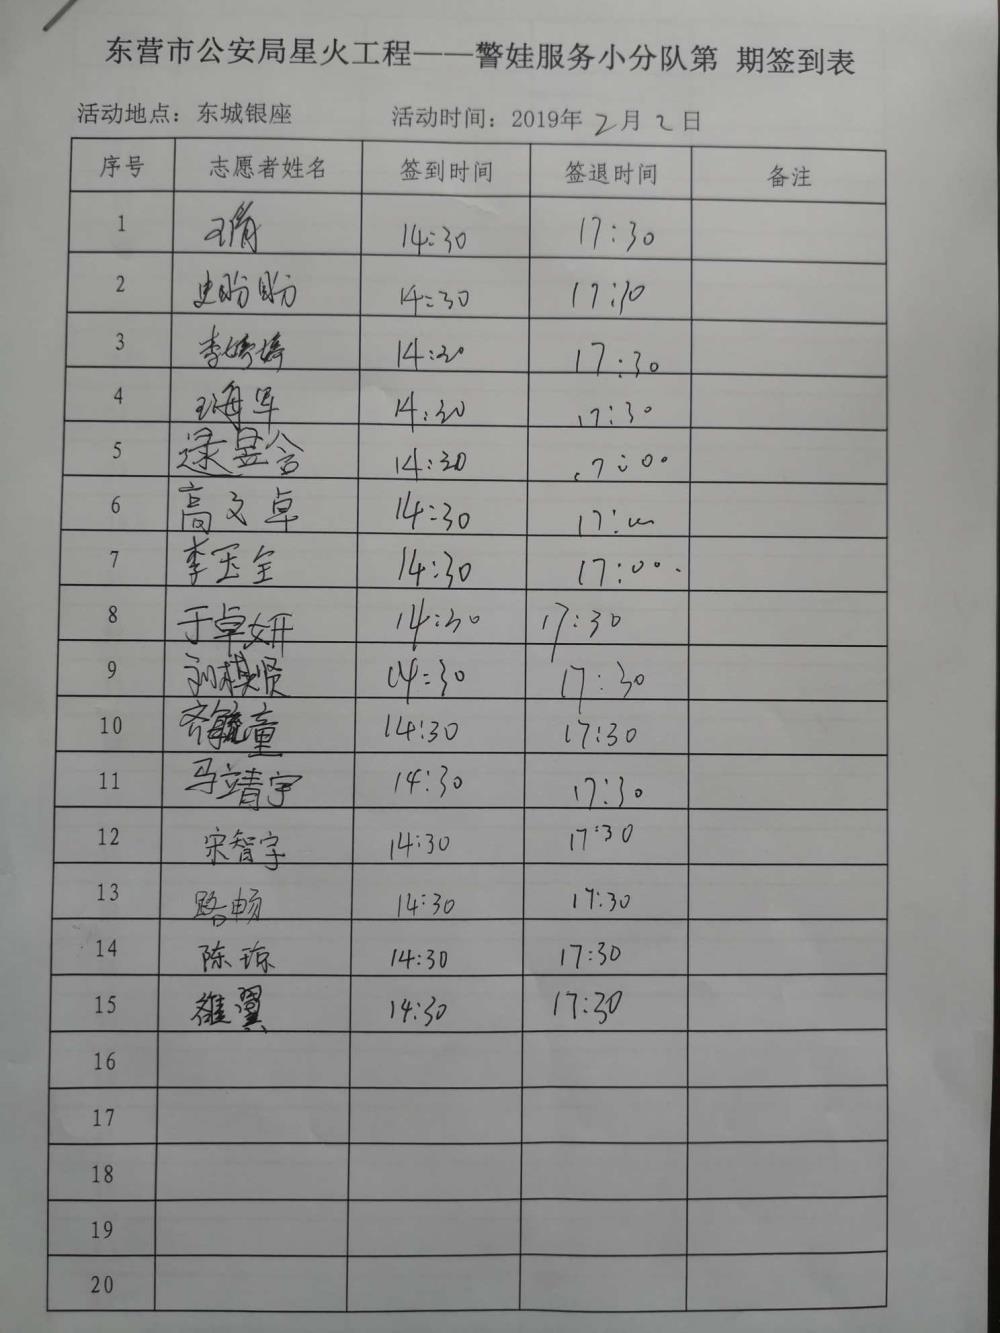 东营市公安局星火工程——警娃服务小分队第 期签到表
活动地点：东城银座 活动时间：2019年2月2日
序号 志愿者姓名 签到时间 签退时间 备注
1 14:30 17:30
2 史盼盼 14:30 17:30
3 李婷婷 14:30 17:30
4 14:30 17:30
5 逯昱含 14:30 17:00
6 高文卓 14:30 17:00
7 李玉全 14:30 17:00
8 于卓妍 14:30 17:30
9 刘棋贤 14:30 17:30
10 齐毓童 14:30 17:30
11 马靖宇 14:30 17:30
12 宋智宇 14:30 17:30
13 路畅 14:30 17:30
14 陈琼 14:30 17:30
15 翼 14:30 17:30
16
17
18
19
20